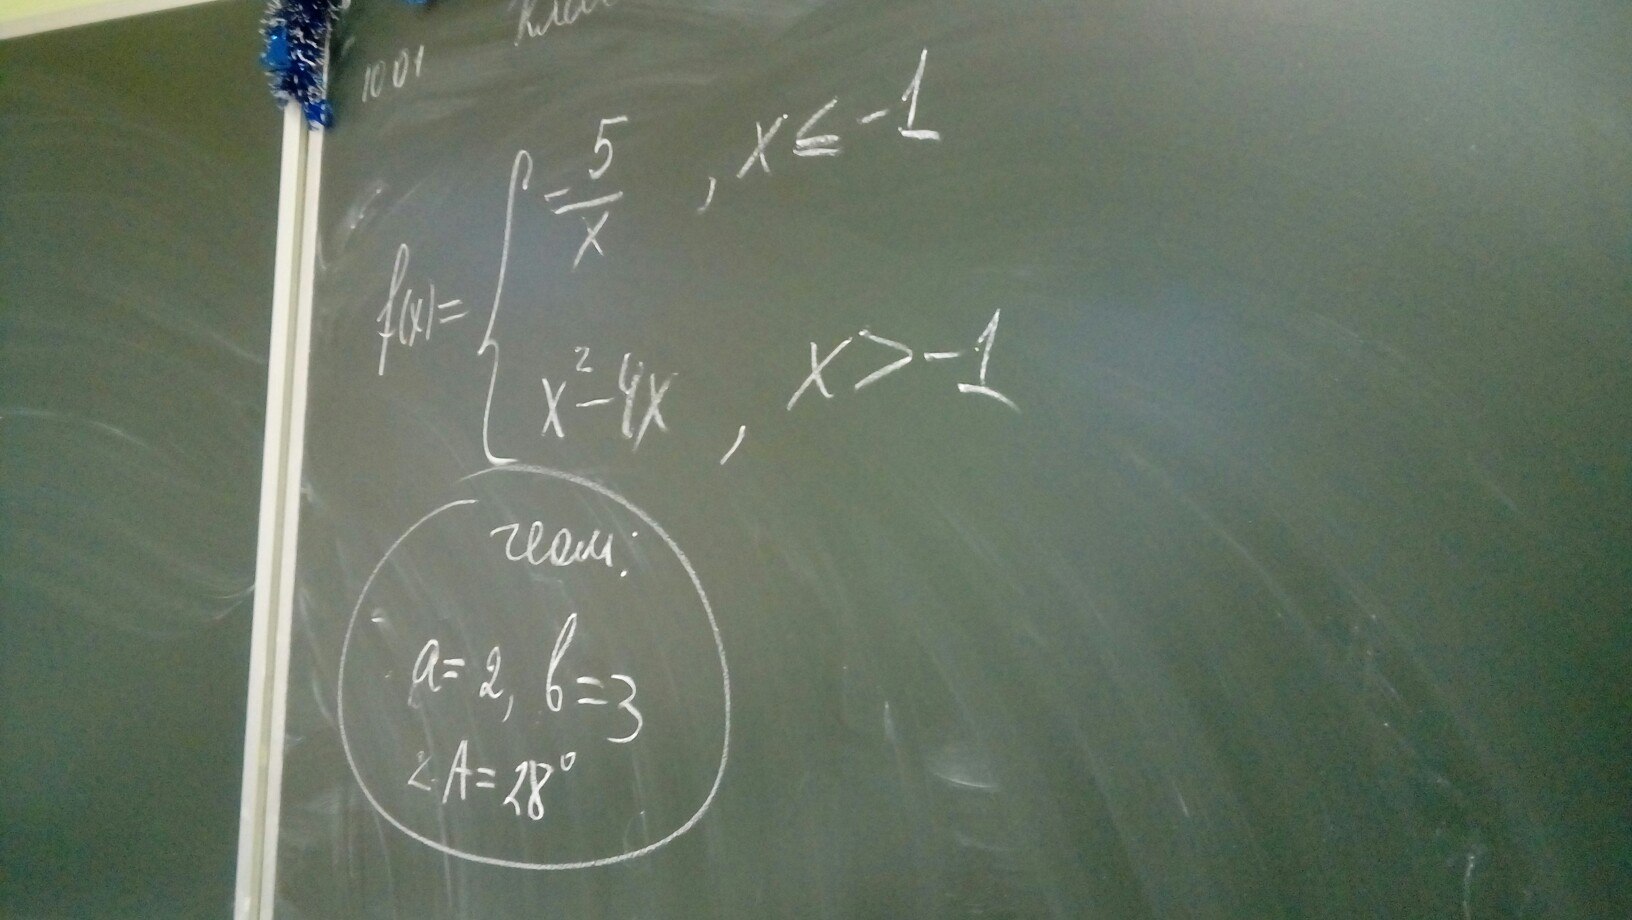 10 01
f(x) = { -5/x , x ≤ -1
x² - 4x , x > -1
геом:
a = 2, b = 3
∠A = 28°